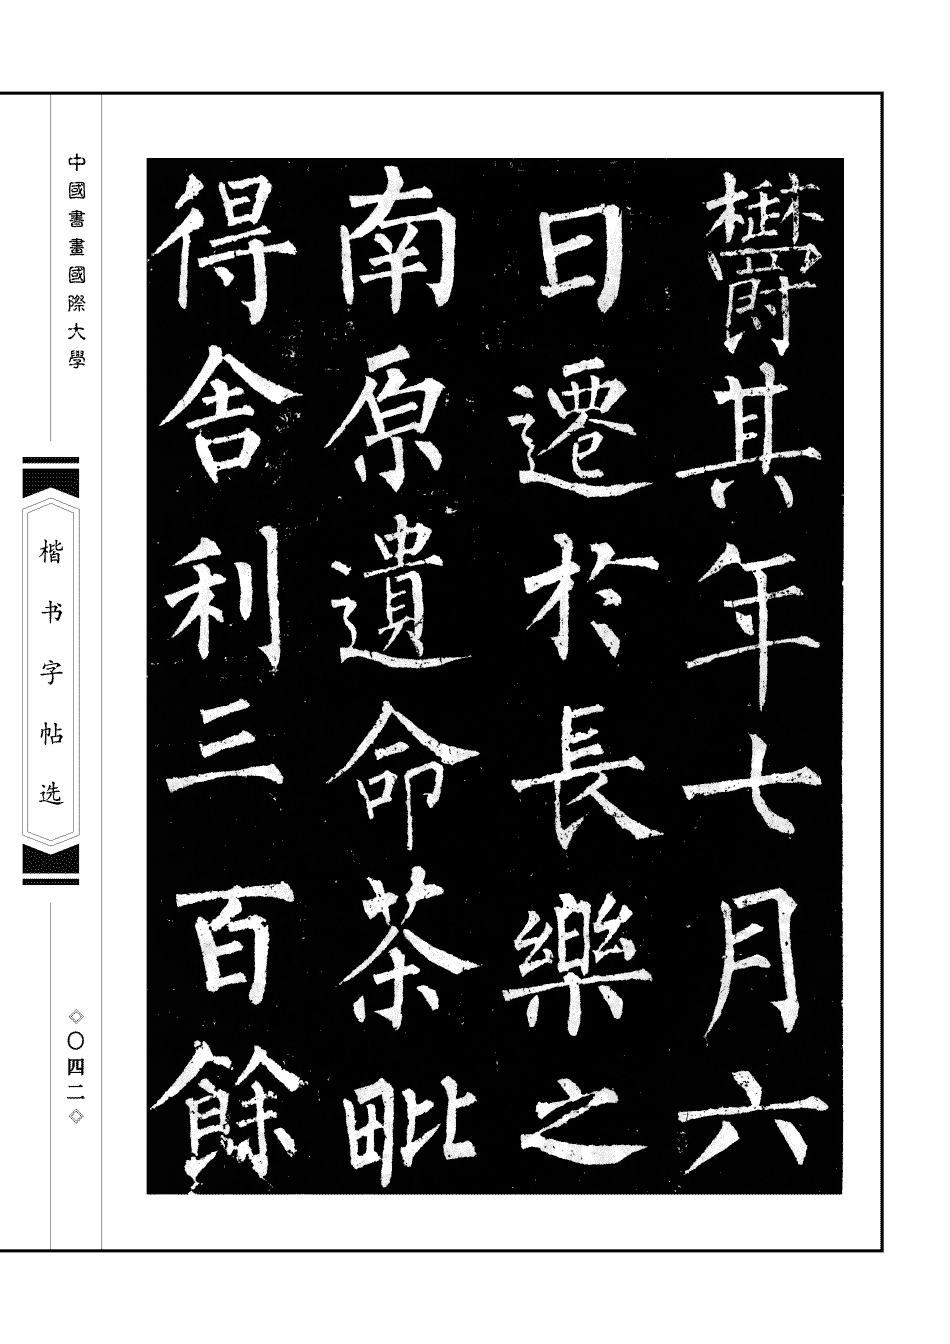 欝其年七月六
日遷於長樂之
南原遺命茶毗
得舍利三百餘
中國書畫國際大學
楷书字帖选
〇四二